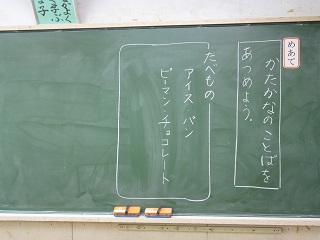 めあて
かたかなのことばを
あつめよう。
たべもの
アイス パン
ピーマン チョコレート